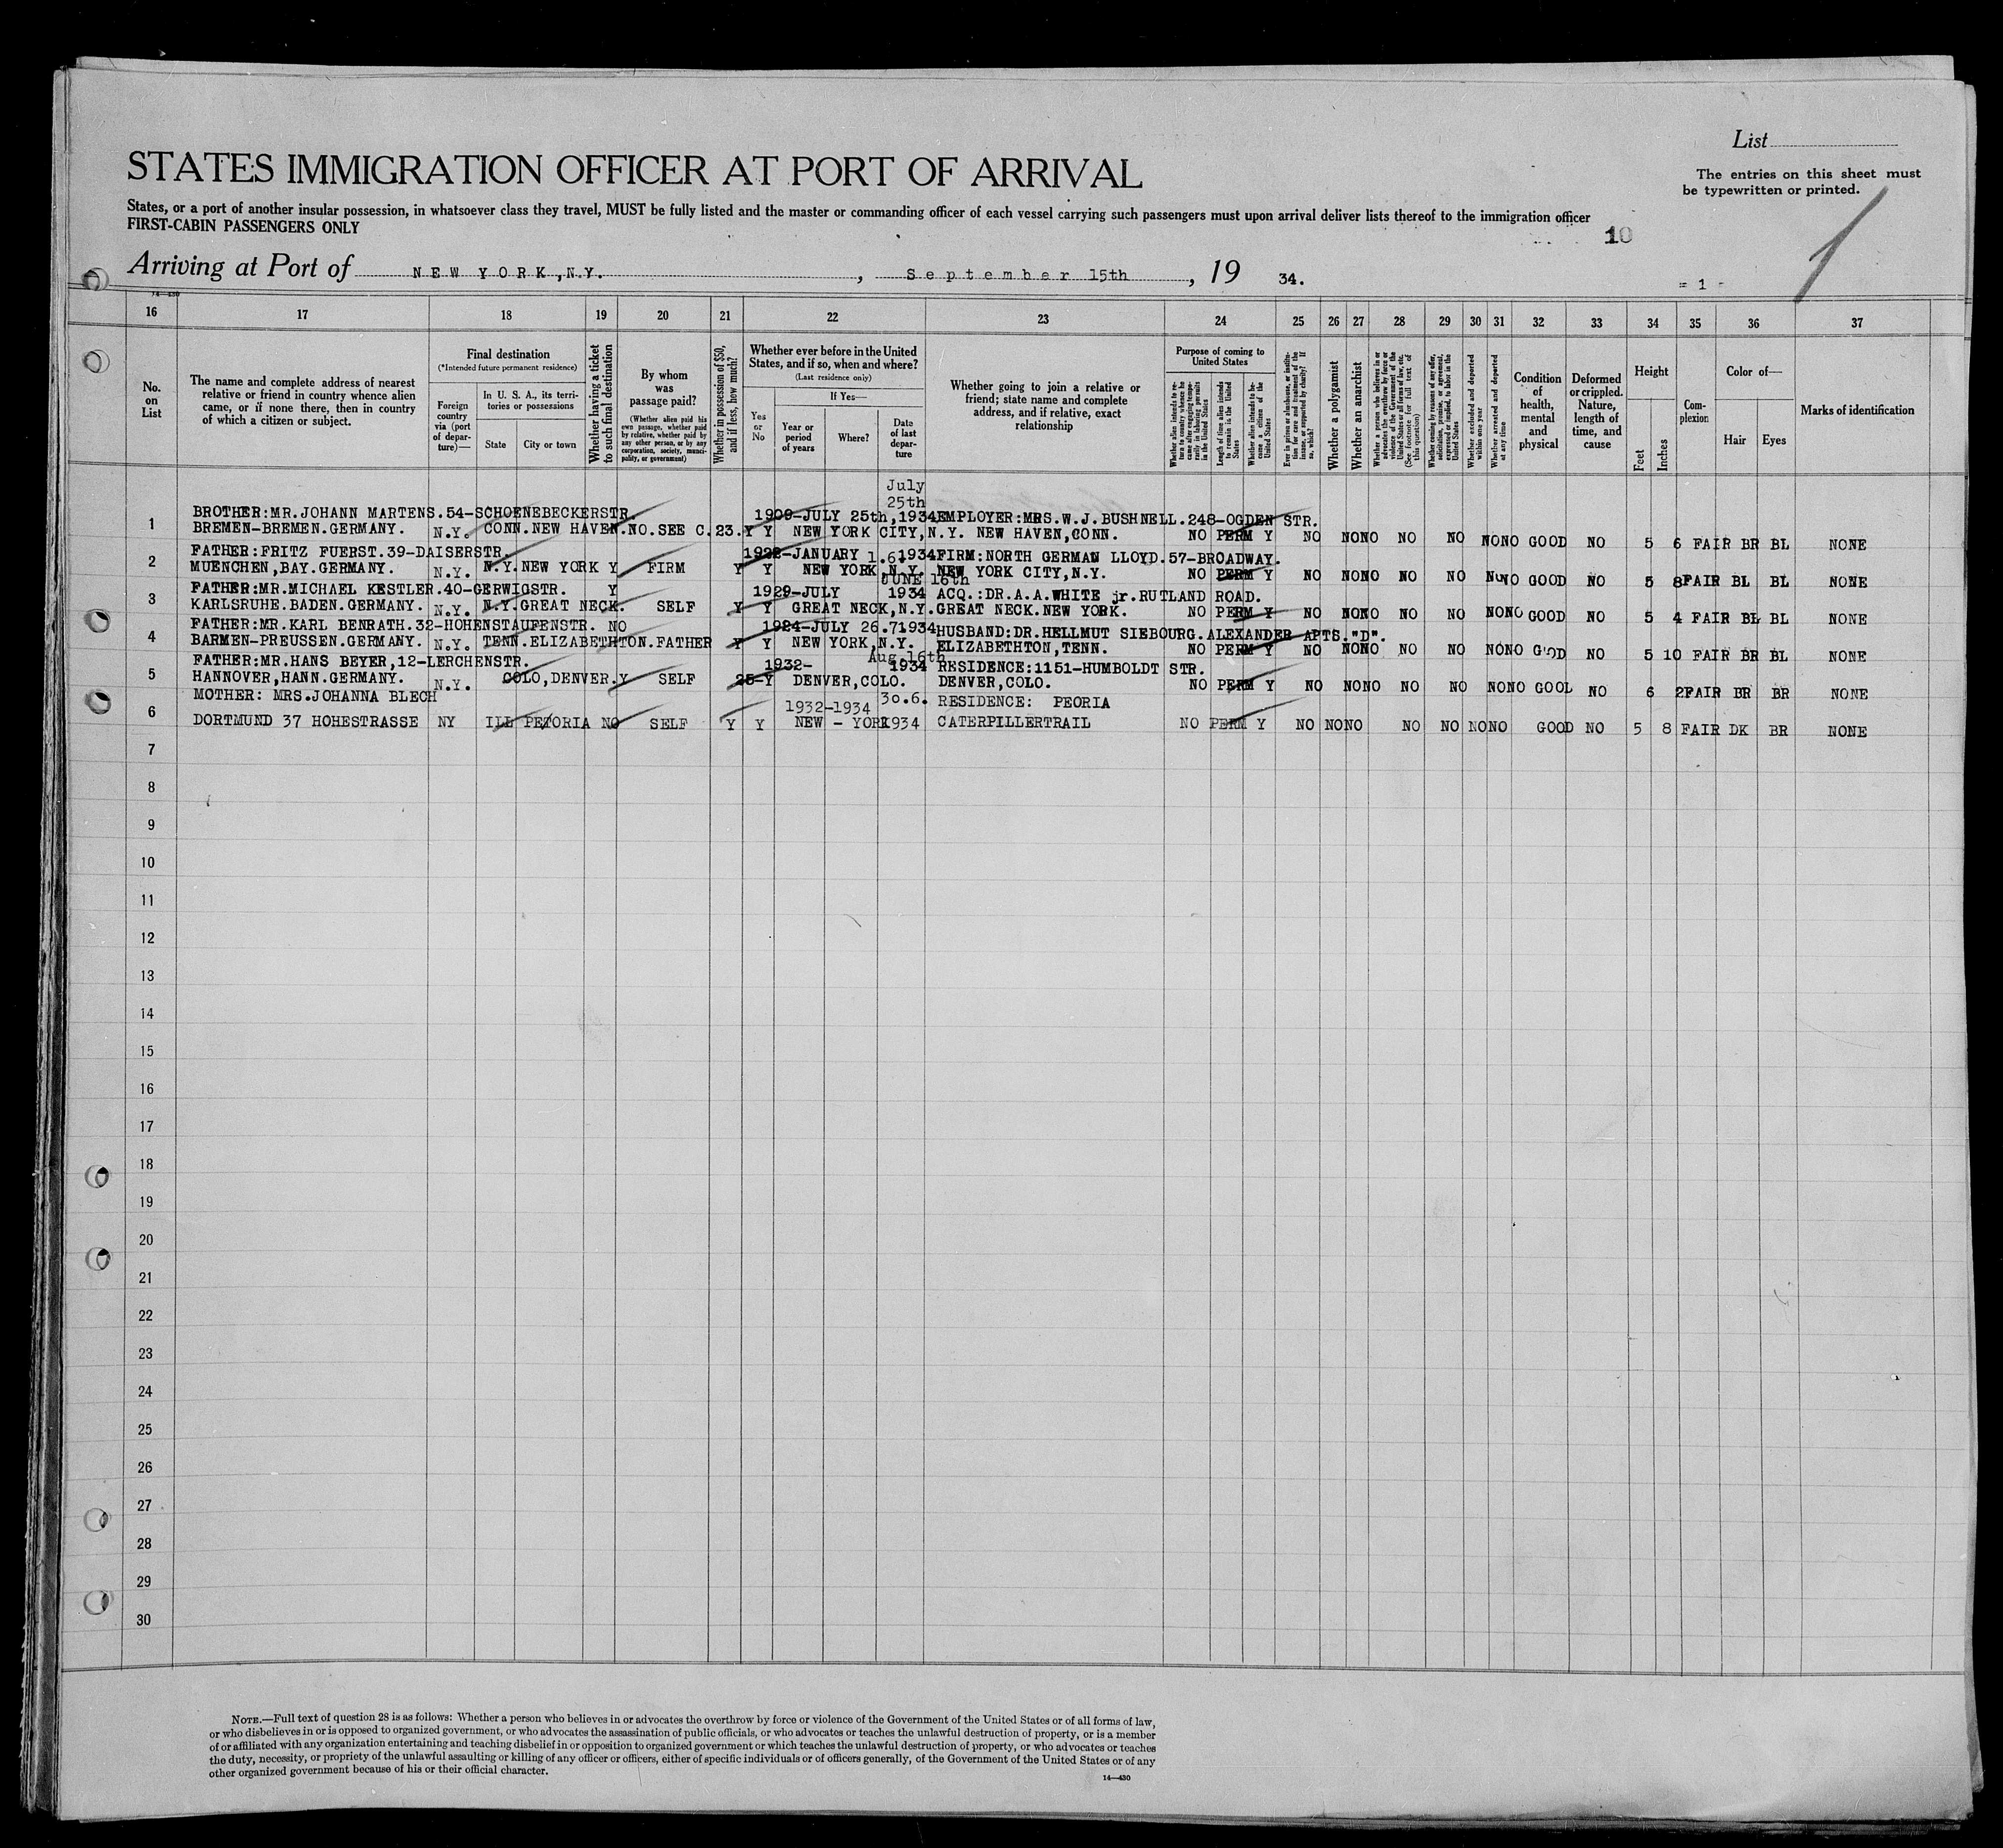 List
STATES IMMIGRATION OFFICER AT PORT OF ARRIVAL
The entries on this sheet must
be typewritten or printed.
States, or a port of another insular possession, in whatsoever class they travel, MUST be fully listed and the master or commanding officer of each vessel carrying such passengers must upon arrival deliver lists thereof to the immigration officer
FIRST-CABIN PASSENGERS ONLY
10
1
Arriving at Port of NEW YORK, N.Y. , September 15th , 19 34.
- 1 -
16 17 18 19 20 21 22 23 24 25 26 27 28 29 30 31 32 33 34 35 36 37
No. on List
The name and complete address of nearest
relative or friend in country whence alien
came, or if none there, then in country
of which a citizen or subject.
Final destination
(*Intended future permanent residence)
Foreign country via (port of departure)—
In U. S. A., its territories or possessions
State
City or town
Whether having a ticket to such final destination
By whom was passage paid?
(Whether alien paid his own passage, whether paid by relative, whether paid by any other person, or by any corporation, society, municipality, or government)
Whether in possession of $50, and if less, how much?
Whether ever before in the United
States, and if so, when and where?
(Last residence only)
Yes or No
If Yes—
Year or period of years
Where?
Date of last departure
Whether going to join a relative or
friend; state name and complete
address, and if relative, exact
relationship
Purpose of coming to
United States
Length of time alien intends to remain in the United States
Whether alien intends to become a citizen of the United States
Whether a polygamist
Whether an anarchist
Whether excluded and deported within one year
Whether arrested and deported at any time
Condition of health, mental and physical
Deformed or crippled. Nature, length of time, and cause
Height
Feet
Inches
Complexion
Color of—
Hair
Eyes
Marks of identification
July
25th
BROTHER:MR.JOHANN MARTENS.54-SCHOENEBECKERSTR. 1909-JULY 25th,1934 EMPLOYER:MRS.W.J.BUSHNELL.248-OGDEN STR.
1 BREMEN-BREMEN.GERMANY. N.Y. CONN.NEW HAVEN.NO.SEE C.23.Y Y NEW YORK CITY,N.Y. NEW HAVEN,CONN. NO PERM Y NO NONO NO NO NONO GOOD NO 5 6 FAIR BR BL NONE
FATHER:FRITZ FUERST.39-DAISERSTR. 1922-JANUARY 1.6.1934 FIRM:NORTH GERMAN LLOYD.57-BROADWAY.
2 MUENCHEN,BAY.GERMANY. N.Y. N.Y.NEW YORK Y FIRM Y Y NEW YORK N.Y. NEW YORK CITY,N.Y. NO PERM Y NO NONO NO NO NONO GOOD NO 5 8 FAIR BL BL NONE
JUNE 16th
FATHER:MR.MICHAEL KESTLER.40-GERWIGSTR. Y 1929-JULY 1934 ACQ.:DR.A.A.WHITE jr.RUTLAND ROAD.
3 KARLSRUHE.BADEN.GERMANY. N.Y. N.Y.GREAT NECK. SELF Y Y GREAT NECK,N.Y. GREAT NECK.NEW YORK. NO PERM Y NO NONO NO NO NONO GOOD NO 5 4 FAIR BL BL NONE
FATHER:MR.KARL BENRATH.32-HOHENSTAUFENSTR. NO 1924-JULY 26.71934 HUSBAND:DR.HELLMUT SIEBOURG.ALEXANDER APTS."D".
4 BARMEN-PREUSSEN.GERMANY. N.Y. TENN.ELIZABETHTON.FATHER Y Y NEW YORK,N.Y. ELIZABETHTON,TENN. NO PERM Y NO NONO NO NO NONO GOOD NO 5 10 FAIR BR BL NONE
Aug.16th
FATHER:MR.HANS BEYER,12-LERCHENSTR. 1932- 1934 RESIDENCE:1151-HUMBOLDT STR.
5 HANNOVER,HANN.GERMANY. N.Y. COLO,DENVER.Y SELF 25-Y DENVER,COLO. DENVER,COLO. NO PERM Y NO NONO NO NO NONO GOOD NO 6 2 FAIR BR BR NONE
MOTHER: MRS.JOHANNA BLECH 1932-1934 30.6. RESIDENCE: PEORIA
6 DORTMUND 37 HOHESTRASSE NY ILL PETORIA NO SELF Y Y NEW - YORK 1934 CATERPILLERTRAIL NO PERM Y NO NONO NO NO NONO GOOD NO 5 8 FAIR DK BR NONE
7
8
9
10
11
12
13
14
15
16
17
18
19
20
21
22
23
24
25
26
27
28
29
30
NOTE.—Full text of question 28 is as follows: Whether a person who believes in or advocates the overthrow by force or violence of the Government of the United States or of all forms of law,
or who disbelieves in or is opposed to organized government, or who advocates the assassination of public officials, or who advocates or teaches the unlawful destruction of property, or is a member
of or affiliated with any organization entertaining and teaching disbelief in or opposition to organized government or which teaches the unlawful destruction of property, or who advocates or teaches
the duty, necessity, or propriety of the unlawful assaulting or killing of any officer or officers, either of specific individuals or of officers generally, of the Government of the United States or of any
other organized government because of his or their official character.
14—430